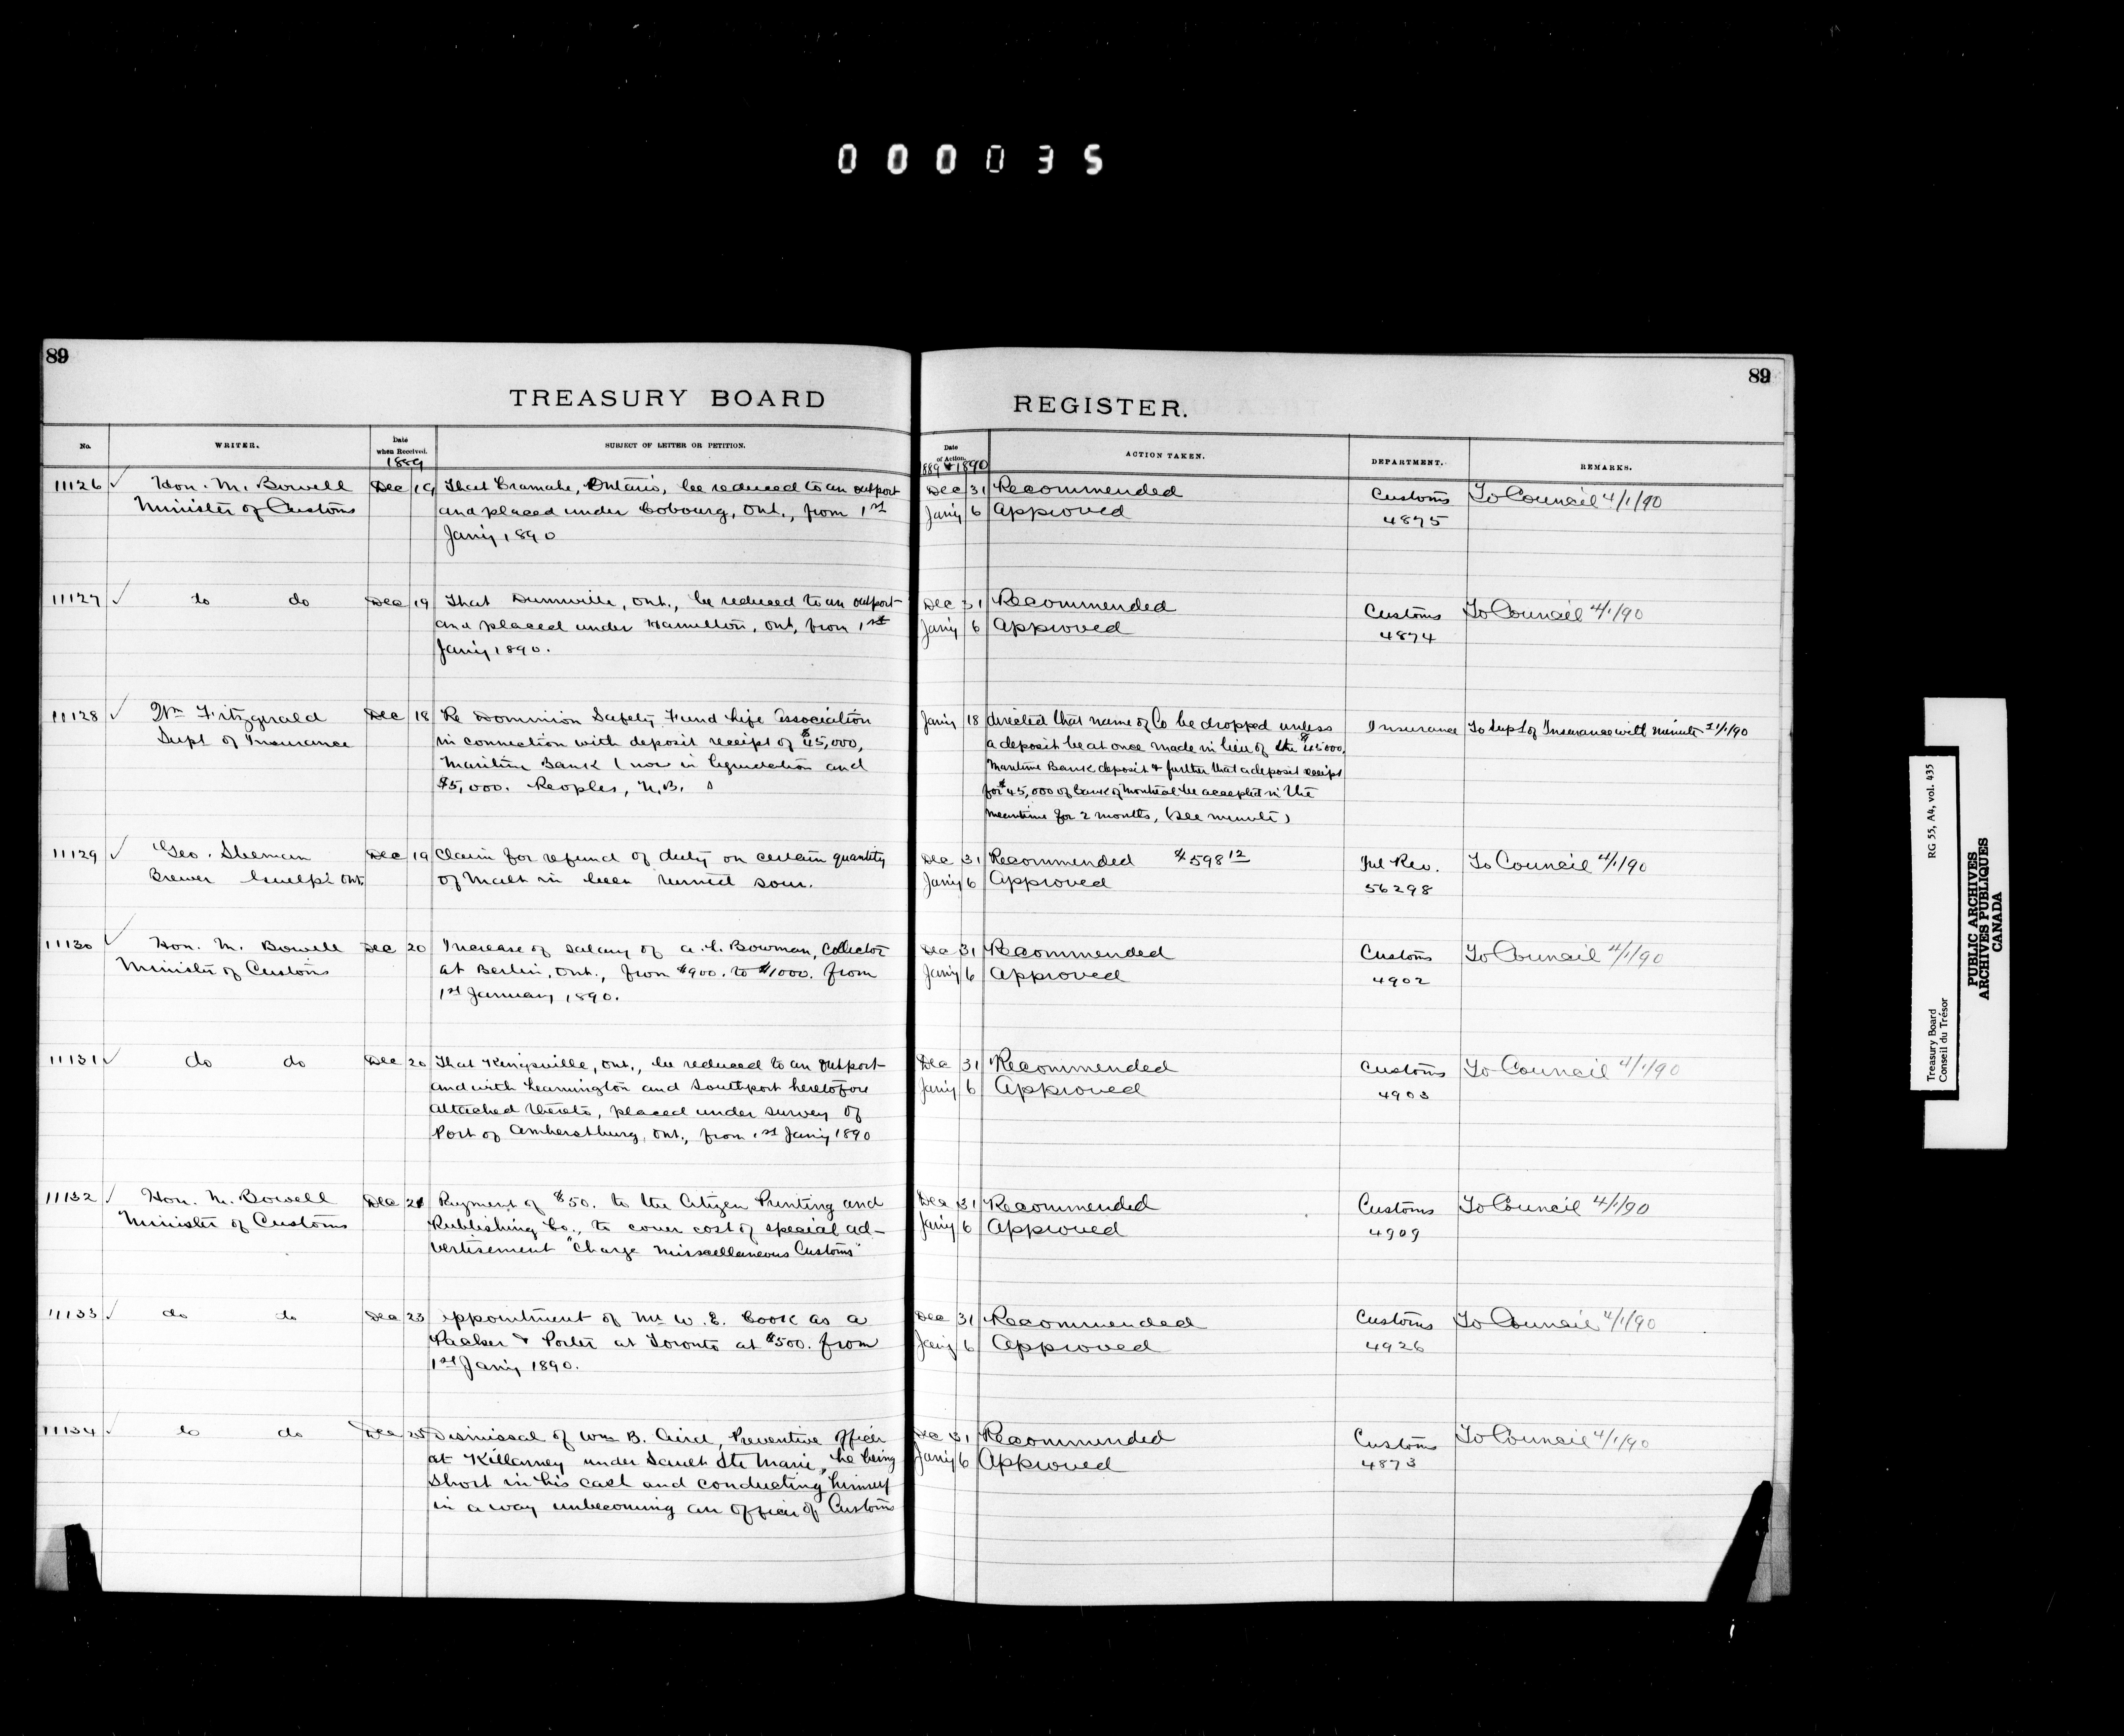 000035
89
89
TREASURY BOARD
REGISTER.
No.
WRITER.
Date when Received.
1889
SUBJECT OF LETTER OR PETITION.
Date of Action.
1889 & 1890
ACTION TAKEN.
DEPARTMENT.
REMARKS.
11126 ✓ Hon. M. Bowell Dec 19 That Cramahe, Ontario, be reduced to an outport Dec 31 Recommended Customs To Council 4/1/90
Minister of Customs and placed under Cobourg, Ont., from 1st Jany 6 Approved 4875
Jany 1890
11127 ✓ do do Dec 19 That Dunnville, Ont., be reduced to an outport Dec 31 Recommended Customs To Council 4/1/90
and placed under Hamilton, Ont, from 1st Jany 6 Approved 4874
Jany 1890.
11128 ✓ Wm Fitzgerald Dec 18 Re Dominion Safety Fund Life Association Jany 18 directed that name of Co be dropped unless Insurance To Supt of Insurance with minute 21/1/90
Supt of Insurance in connection with deposit receipt of $45,000, a deposit be at once made in lieu of the $45,000.
Maritime Bank (now in liquidation and Maritime Bank deposit & further that a deposit receipt
$5,000. Peoples, N.B. for $45,000 of Bank of Montreal be accepted in the
meantime for 2 months, (See minute)
11129 ✓ Geo. Sleeman Dec 19 Claim for refund of duty on certain quantity Dec 31 Recommended $598 12 Inl Rev. To Council 4/1/90
Brewer Guelph Ont. of Malt in beer turned sour. Jany 6 Approved 56298
11130 ✓ Hon. M. Bowell Dec 20 Increase of salary of Bowman, Collector Dec 31 Recommended Customs To Council 4/1/90
Minister of Customs at Berlin, Ont., from $900. to $1000. from Jany 6 Approved 4902
1st January 1890.
11131 ✓ do do Dec 20 That Kingsville, Ont., be reduced to an outport Dec 31 Recommended Customs To Council 4/1/90
and with Leamington and Southport heretofore Jany 6 Approved 4903
attached thereto, placed under survey of
Port of Amherstburg, Ont., from 1st Jany 1890
11132 ✓ Hon. M. Bowell Dec 21 Payment of $50. to the Citizen Printing and Dec 31 Recommended Customs To Council 4/1/90
Minister of Customs Publishing Co., to cover cost of special ad- Jany 6 Approved 4909
vertisement "Charge Miscellaneous Customs"
11133 ✓ do do Dec 23 Appointment of Mr W. E. Cook as a Dec 31 Recommended Customs To Council 4/1/90
Packer & Porter at Toronto at $500. from Jany 6 Approved 4926
1st Jany 1890.
11134 ✓ do do Dec Dismissal of Wm B. Aird, Preventive Officer Dec 31 Recommended Customs To Council 4/1/90
at Killarney under Sault Ste Marie, he being Jany 6 Approved 4873
short in his cash and conducting himself
in a way unbecoming an officer of Customs
Treasury Board RG 55, A4, vol. 435
Conseil du Trésor
PUBLIC ARCHIVES
ARCHIVES PUBLIQUES
CANADA